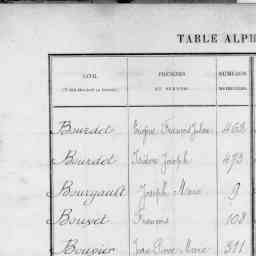 TABLE ALPH
NOM. PRÉNOMS NUMÉROS
ET SURNOMS.
Bourdet François Julien 468
Bourdet Isidore Joseph 473
Bourgault Joseph Marie 9
Bouvet François 108
Bouvier Jean Pierre Marie 311